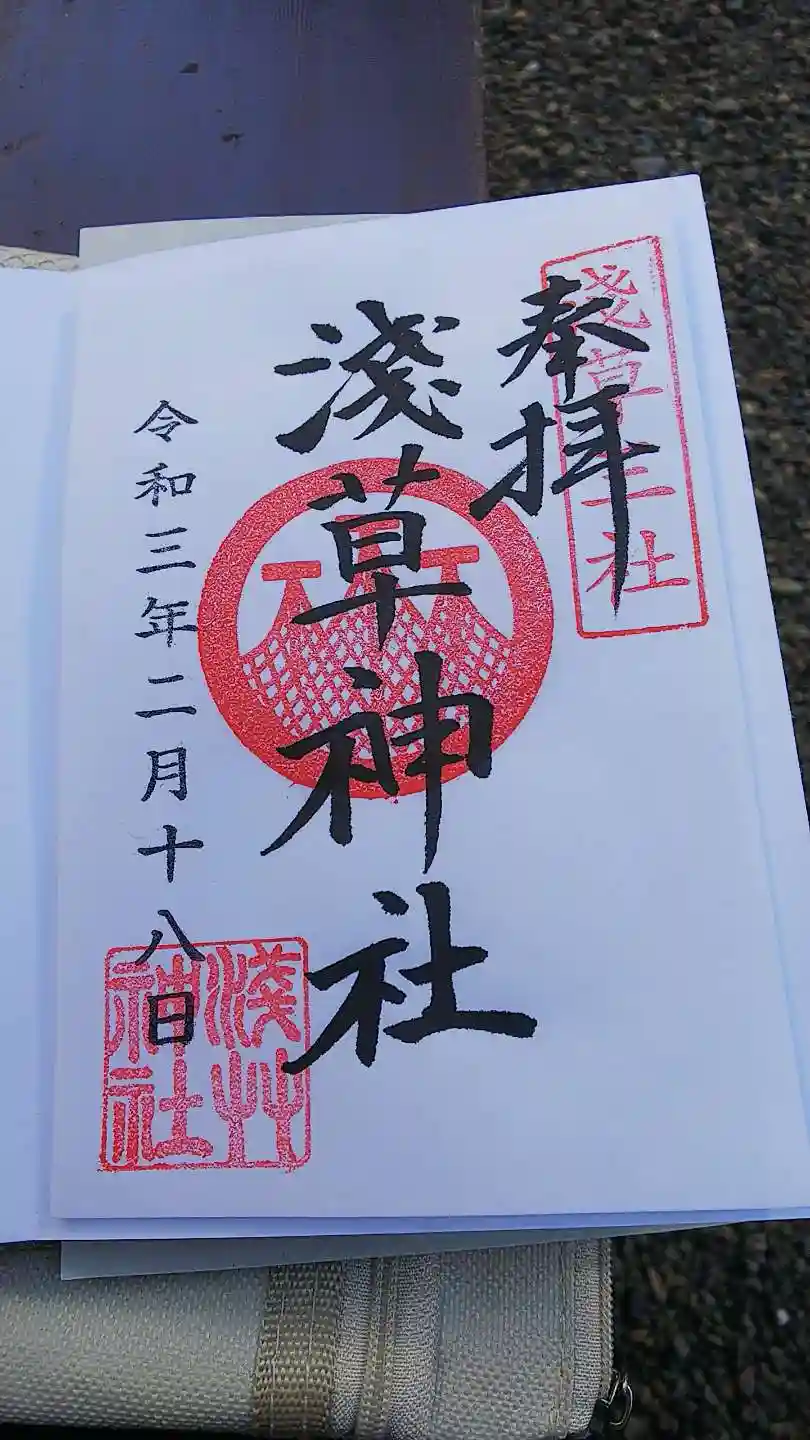 奉拝
淺草三社
淺草神社
令和三年二月十八日
淺艸
神社